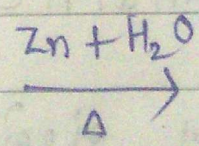 Zn + H₂O
Δ